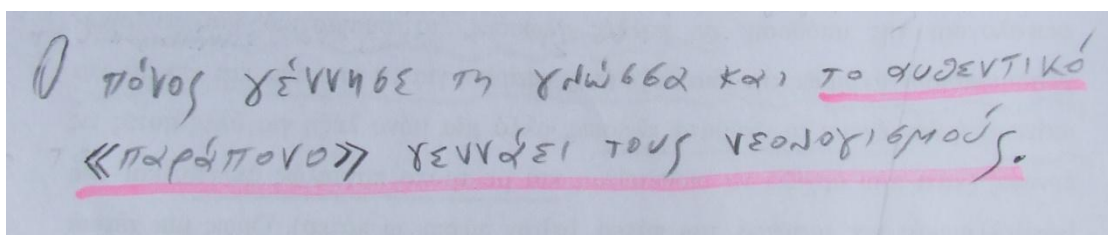 Ο πόνος γέννησε τη γλώσσα και το αυθεντικό
«παράπονο» γεννάει τους νεολογισμούς.